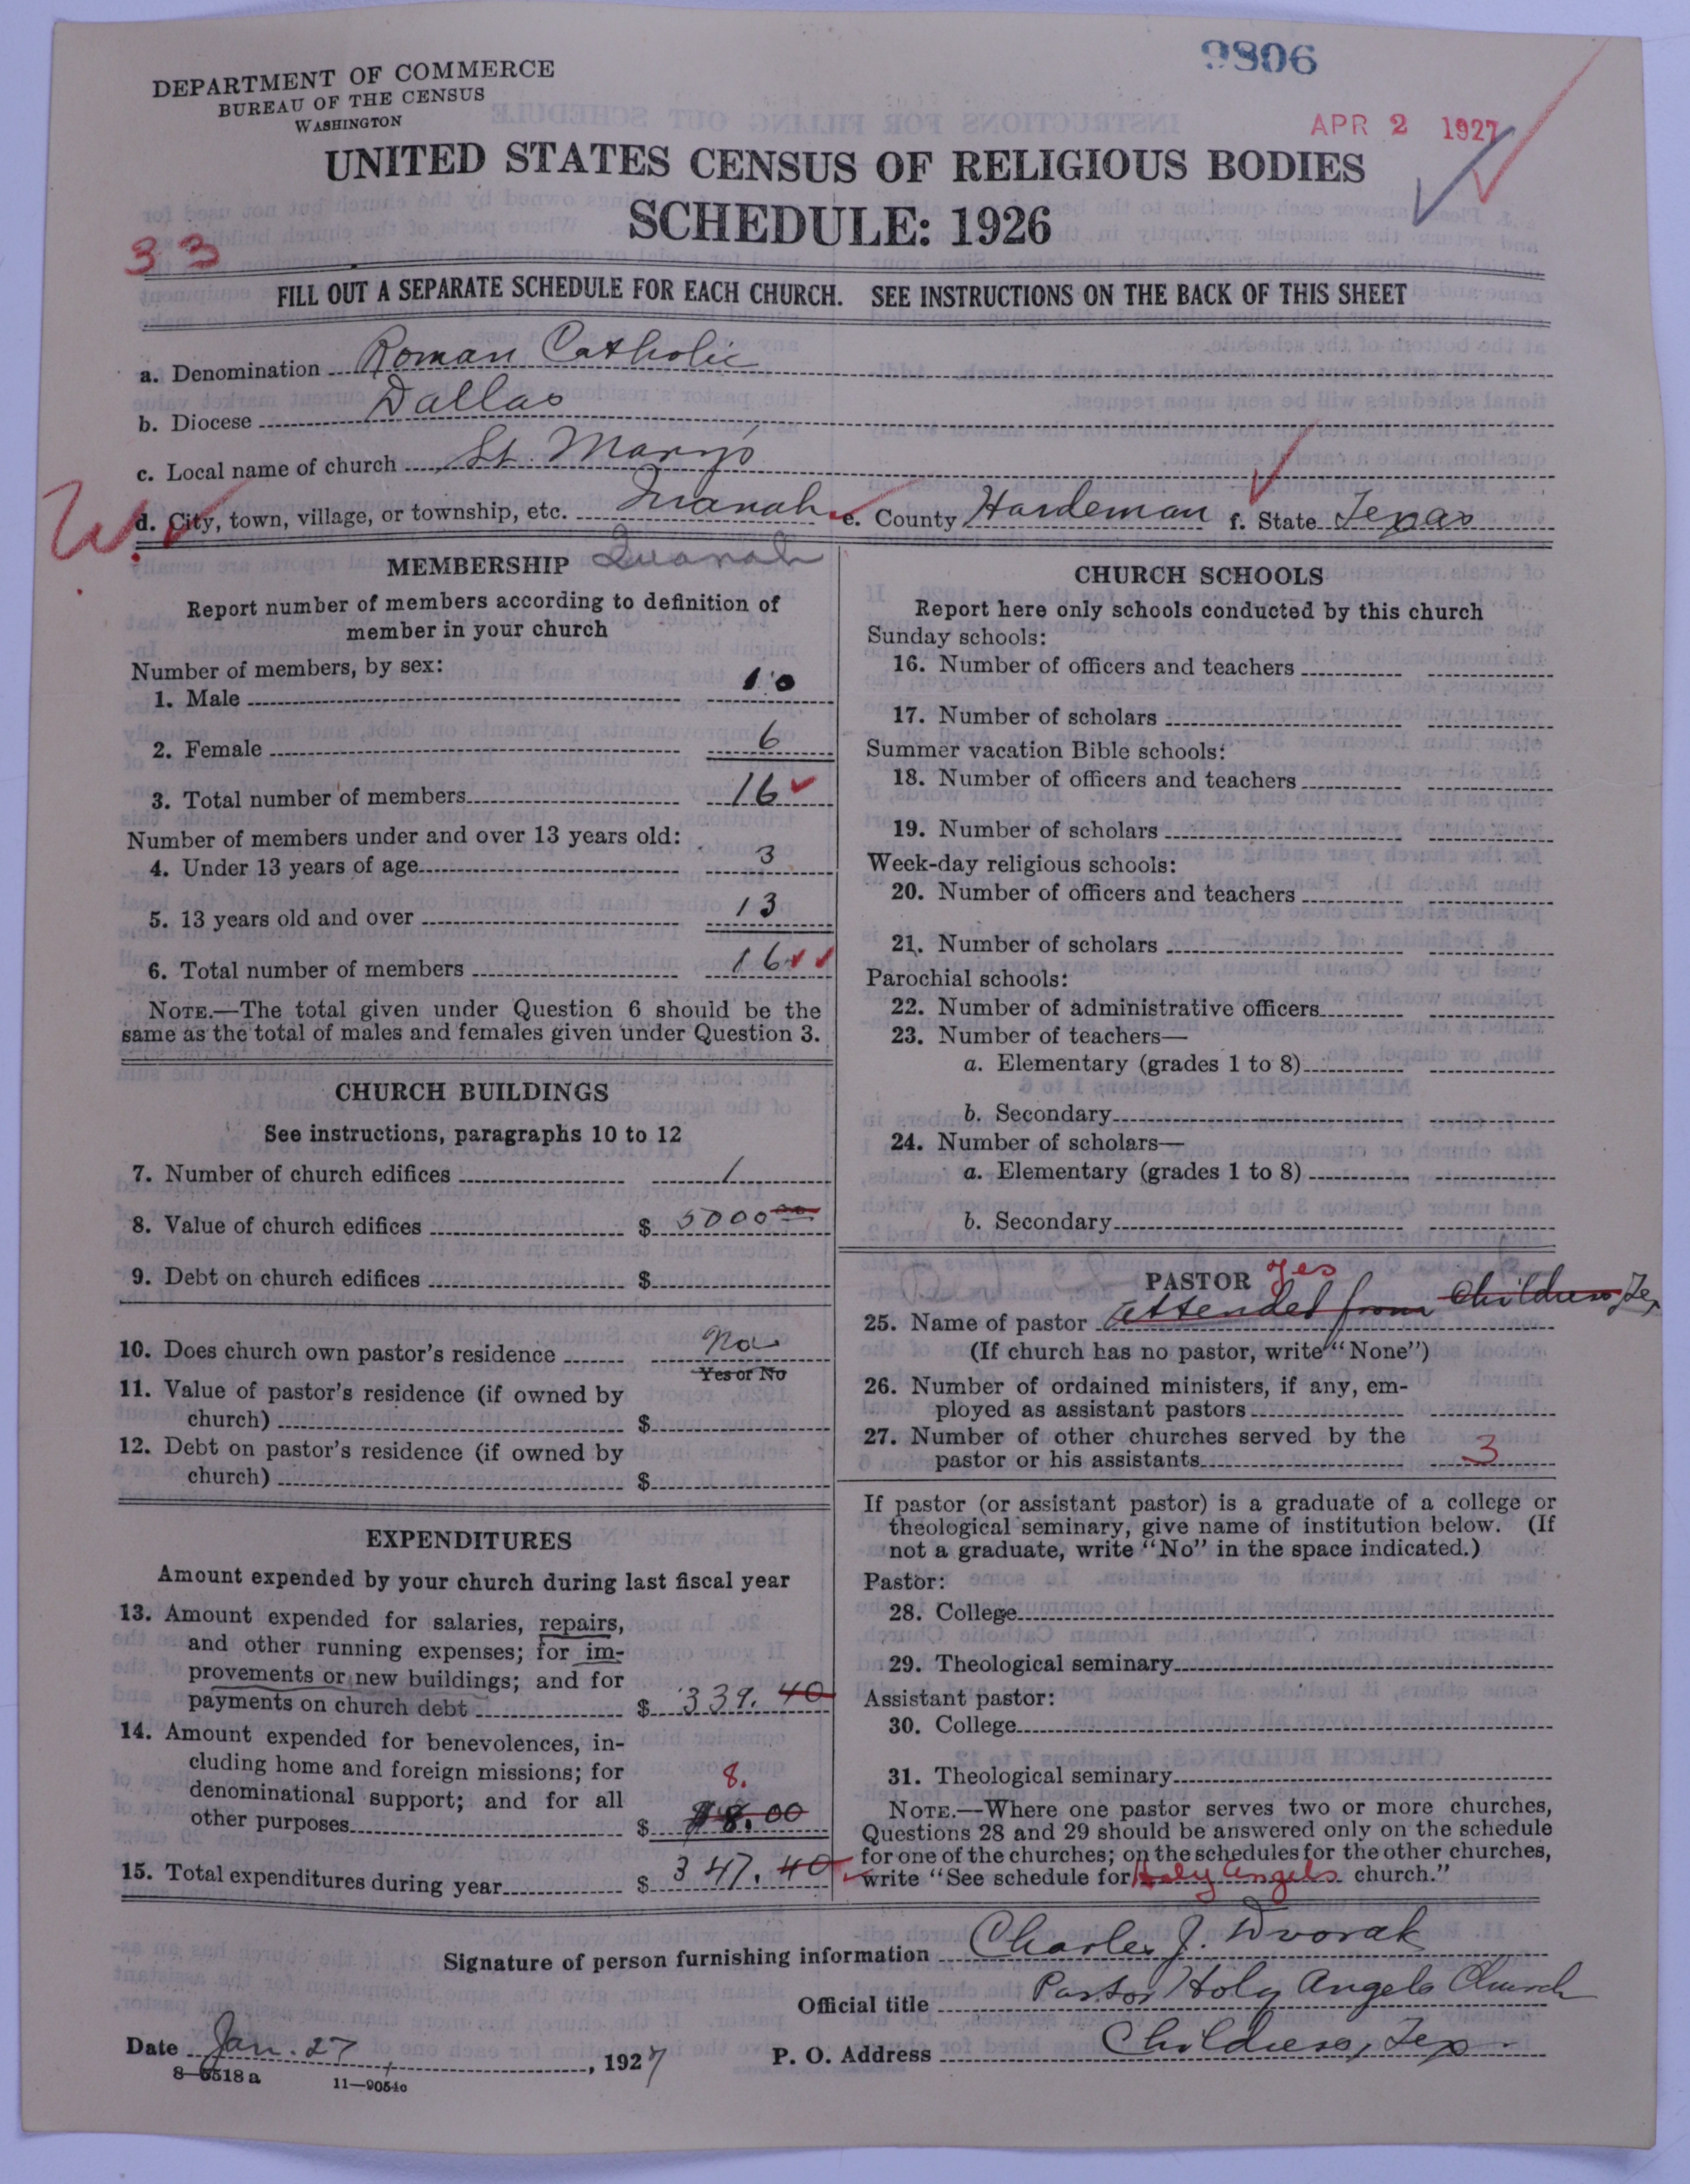 9806
DEPARTMENT OF COMMERCE
BUREAU OF THE CENSUS
WASHINGTON
APR 2 1927
UNITED STATES CENSUS OF RELIGIOUS BODIES
SCHEDULE: 1926
33
FILL OUT A SEPARATE SCHEDULE FOR EACH CHURCH. SEE INSTRUCTIONS ON THE BACK OF THIS SHEET
a. Denomination Roman Catholic
b. Diocese Dallas
c. Local name of church St. Mary's
W.
d. City, town, village, or township, etc. Quanah e. County Hardeman f. State Texas
MEMBERSHIP Quanah
Report number of members according to definition of
member in your church
Number of members, by sex:
1. Male 10
2. Female 6
3. Total number of members 16
Number of members under and over 13 years old:
4. Under 13 years of age 3
5. 13 years old and over 13
6. Total number of members 16
NOTE.—The total given under Question 6 should be the
same as the total of males and females given under Question 3.
CHURCH BUILDINGS
See instructions, paragraphs 10 to 12
7. Number of church edifices 1
8. Value of church edifices $ 5000 00
9. Debt on church edifices $
10. Does church own pastor's residence No
Yes or No
11. Value of pastor's residence (if owned by
church) $
12. Debt on pastor's residence (if owned by
church) $
EXPENDITURES
Amount expended by your church during last fiscal year
13. Amount expended for salaries, repairs,
and other running expenses; for im-
provements or new buildings; and for
payments on church debt $ 339.40
14. Amount expended for benevolences, in-
cluding home and foreign missions; for
denominational support; and for all
8.
other purposes $ $8.00
15. Total expenditures during year $ 347.40
CHURCH SCHOOLS
Report here only schools conducted by this church
Sunday schools:
16. Number of officers and teachers
17. Number of scholars
Summer vacation Bible schools:
18. Number of officers and teachers
19. Number of scholars
Week-day religious schools:
20. Number of officers and teachers
21. Number of scholars
Parochial schools:
22. Number of administrative officers
23. Number of teachers—
a. Elementary (grades 1 to 8)
b. Secondary
24. Number of scholars—
a. Elementary (grades 1 to 8)
b. Secondary
PASTOR yes
25. Name of pastor attended from Childress, Tex
(If church has no pastor, write "None")
26. Number of ordained ministers, if any, em-
ployed as assistant pastors
27. Number of other churches served by the
pastor or his assistants 3
If pastor (or assistant pastor) is a graduate of a college or
theological seminary, give name of institution below. (If
not a graduate, write "No" in the space indicated.)
Pastor:
28. College
29. Theological seminary
Assistant pastor:
30. College
31. Theological seminary
NOTE.—Where one pastor serves two or more churches,
Questions 28 and 29 should be answered only on the schedule
for one of the churches; on the schedules for the other churches,
write "See schedule for Holy Angels church."
Signature of person furnishing information Charles J. Dvorak
Official title Pastor Holy Angels Church
Date Jan. 27, 1927 P. O. Address Childress, Tex
8-6518a 11-9054c